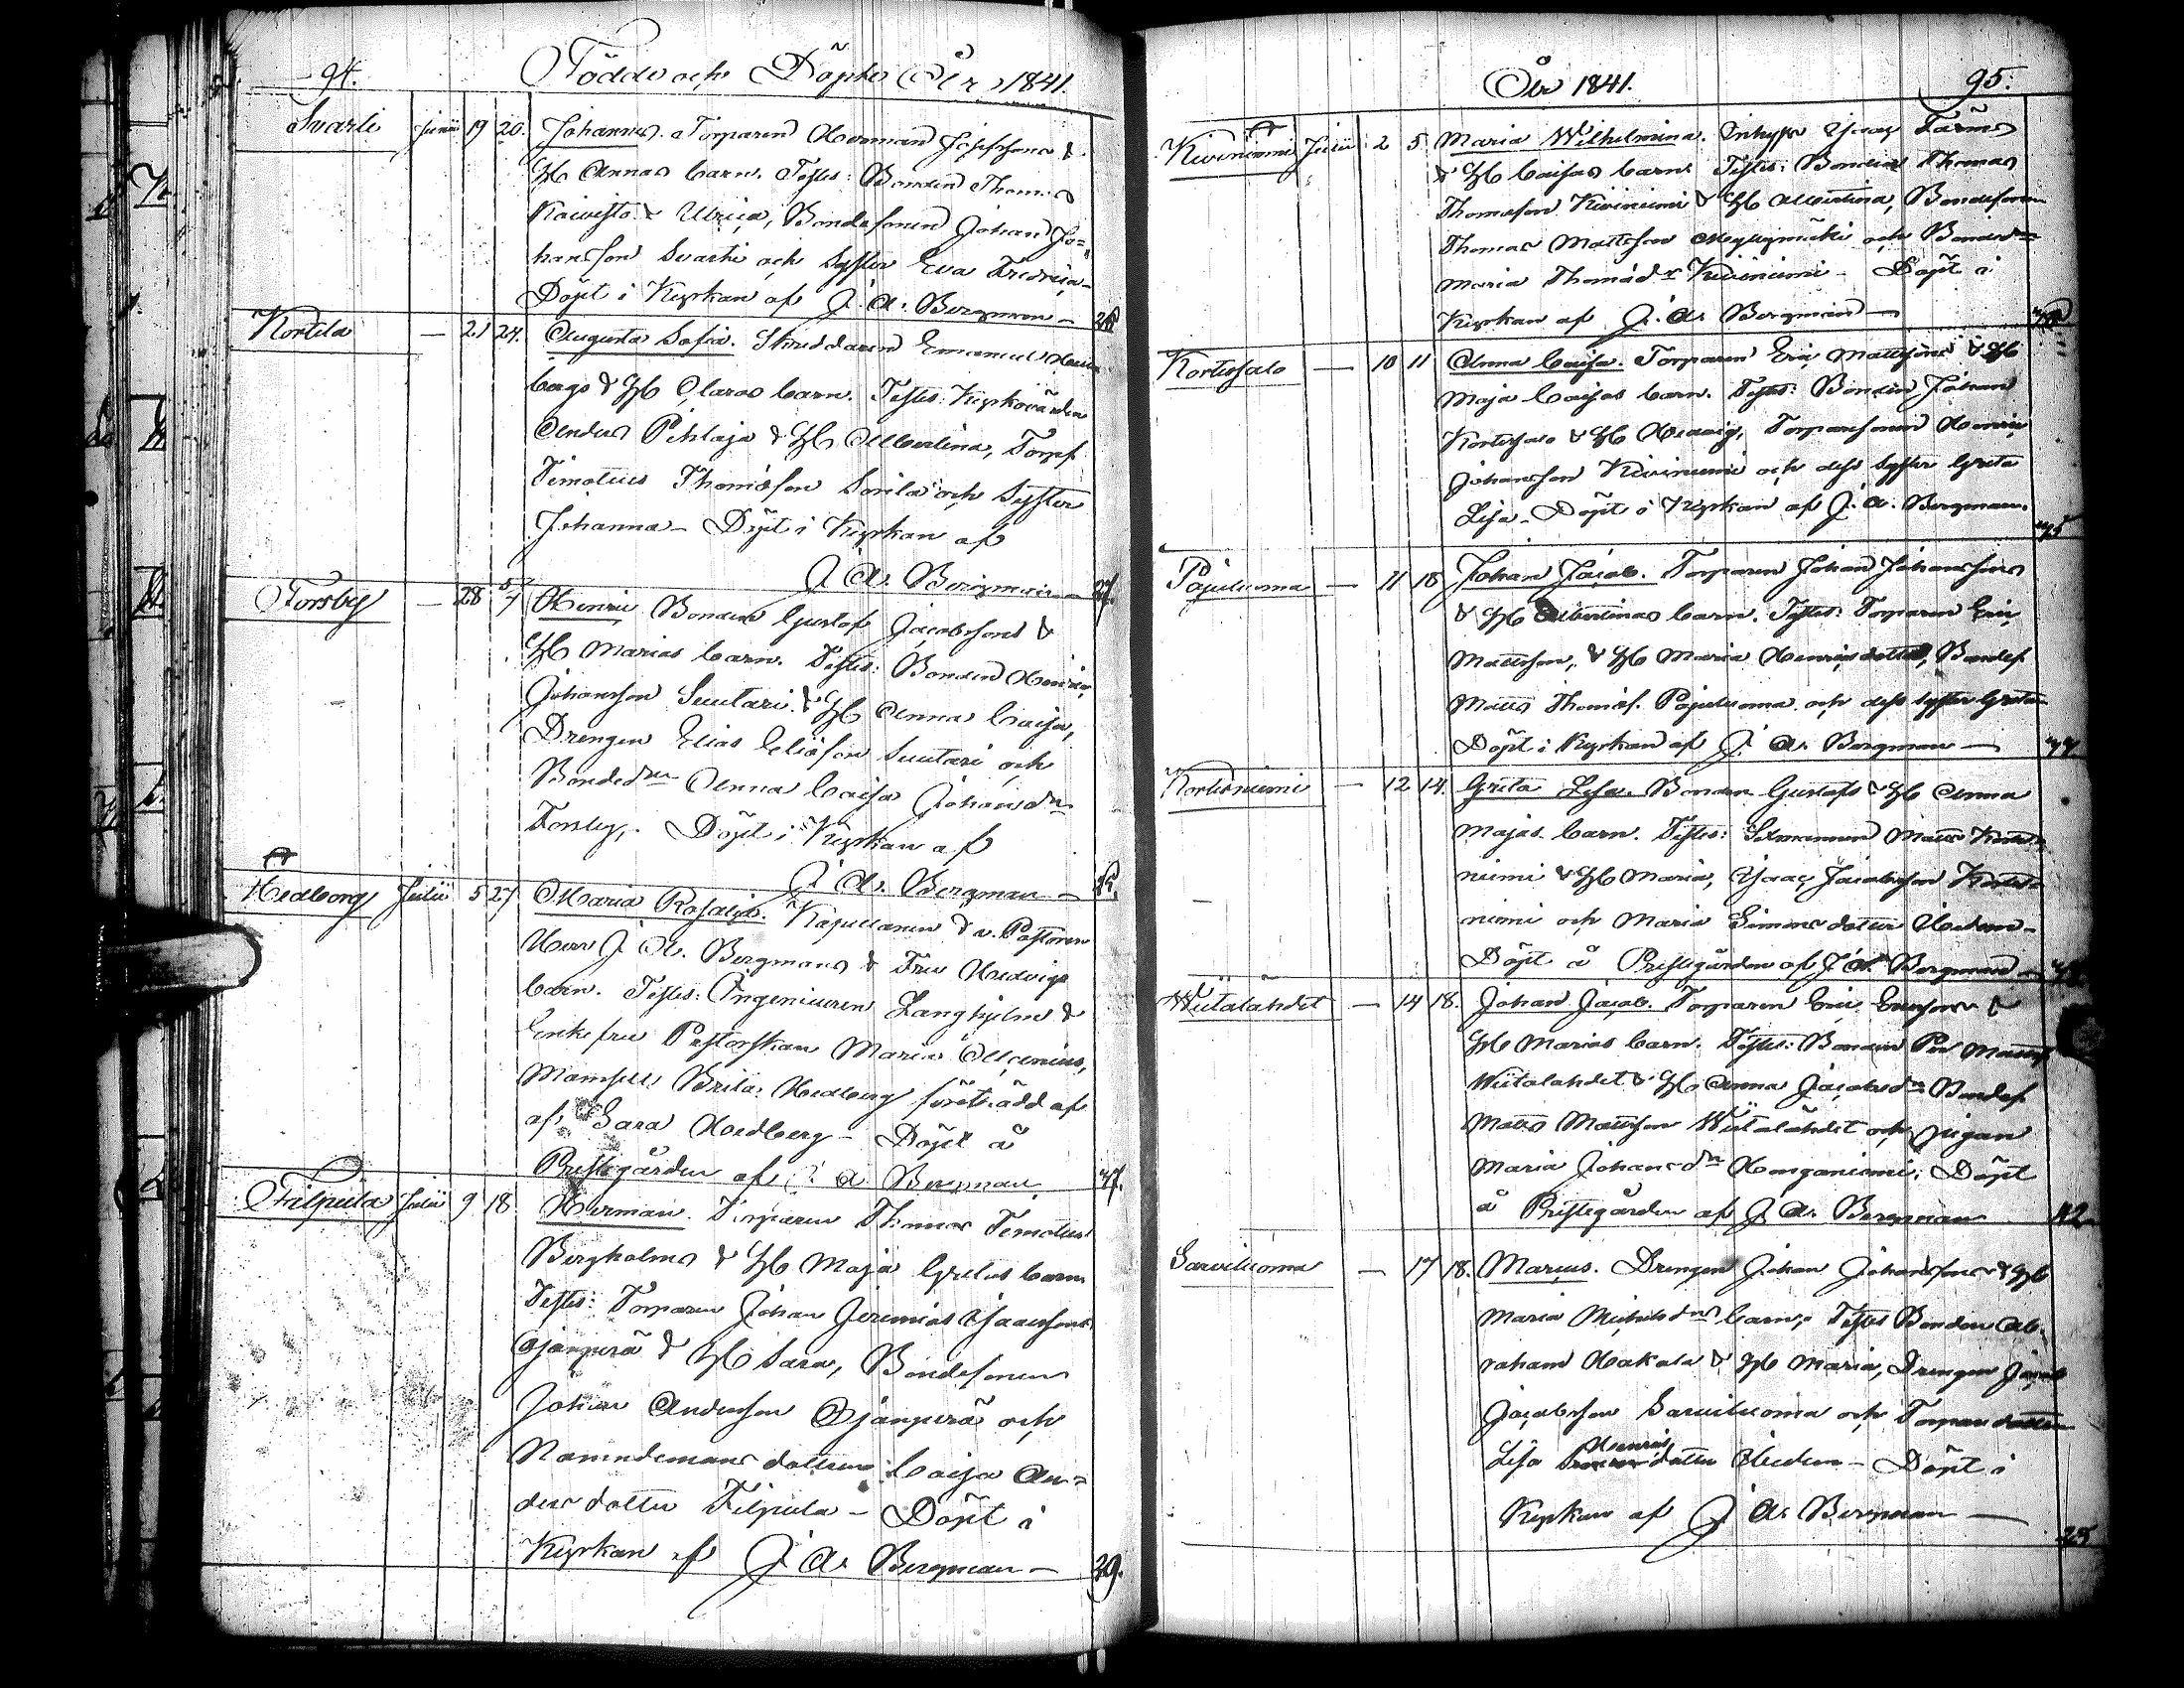 94. Födde och Döpte År 1841.
Svarti Junii 19 20. Johannes. Torparen Herman Josefssons &
H Annas barn. Testes: Bonden Thomas
Koivisto & Ulrica, Bondesonen Johan Jo=
hansson Svarti och Syster Eva Fredrica -
Döpt i Kyrkan af J. A. Bergman -
Kortela — 21 24. Augusta Sofia. Skräddaren Emanuel
bergs & H Claras barn. Testes: Kyrkovärden
Anders Pihlaja & H Albertina, Torpf
Timoteus Thomasson Sorila och Syster
Johanna - Döpt i Kyrkan af
J. A. Bergman - 27.
Forsby — 28 5/7 Henric Bonden Gustaf Jacobssons &
H Marias barn. Testes: Bonden Henric
Johansson Suutari & H Anna Caisa,
Drengen Elias Eliasson Suutari och
Bondedn Anna Caisa Johansdn
Forsby,. Döpt i Kyrkan af
J. A. Bergman -
Hedborg Julii 5 27 Maria Rosalia. Kapellanen & v. Pastoren
Herr J. A. Bergmans & Fru Hedvigs
barn. Testes: Ingenieuren Langhjelm &
Enkefru Pastorskan Maria Alcenius,
Mamsell Brita Hedberg företrädd af
af Sara Hedberg - Döpt å
Prestegården af J. A. Bergman 47.
Filpula Julii 9 18 Herman. Torparen Thomas Timoteus
Bergholms & H Maja Gretas barn
Testes: Torparen Johan Jeremias Isacssons
Ojanperä & H Sara, Bondesonen
Johan Andersson Ojanperä och
Nämndemans dottren Caisa An=
ders dotter Filpula - Döpt i
Kyrkan af J. A. Bergman - 29.
År 1841. 95.
Kiviniemi Julii 2 5 Maria Wilhelmina. Inhyss Isaac Farms
& H Caisas barn. Testes: Bonden Thomas
Thomasson Kiviniemi & H Albertina, Bondesonen
Thomas Mattsson Myllymäki och Bondedn
Maria Thomasdr Kiviniemi - Döpt i
Kyrkan af J. A. Bergman -
Kortessalo — 10 11 Anna Caisa. Torparen Eric Mattssons & H
Maja Caisas barn. Testes: Bonden Johan
Kortessalo & H Hedvig, Torparesonen Henric
Johansson Kiviniemi och dess syster Greta
Lisa - Döpt i Kyrkan af J. A. Bergman.
Pajuluoma — 11 18 Johan Jacob. Torparen Johan Johanssons
& H Albertinas barn. Testes: Torparen Eric
Mattsson, & H Maria Henricsdotter, Bondes.
Matts Thomass. Pajuluoma och dess syster Greta
Döpt i Kyrkan af J. A. Bergman -
Kortesniemi — 12 14. Greta Lisa. Bonden Gustafs & H Anna
Majas barn. Testes: Sexmannen Matts Kortes
niemi & H Maria, Isaac Jacobsson Kortes
niemi och Maria Simons dotter
Döpt å Prestegården af J. A. Bergman -
Wiitalahdet — 14 18. Johan Jacob. Torparen Eric Ericssons &
H Marias barn. Testes: Bonden Per Matts
Wiitalahdet & H Anna Jacobsdn Bondes
Matts Mattsson Wiitalahdet och pigan
Maria Johansdn Hanganiemi. Döpt
å Prestegården af J. A. Bergman 42.
Sarviluoma — 17 18. Marcus. Drengen Johan Johanssons & H
Maria Michelsdns barn, Testes Bonden Ab=
raham Hakala & H Maria, Drengen Jacob
Jacobsson Sarviluoma och Torpare dotter
Lisa Henrics dotter - Döpt i
Kyrkan af J. A. Bergman -
25